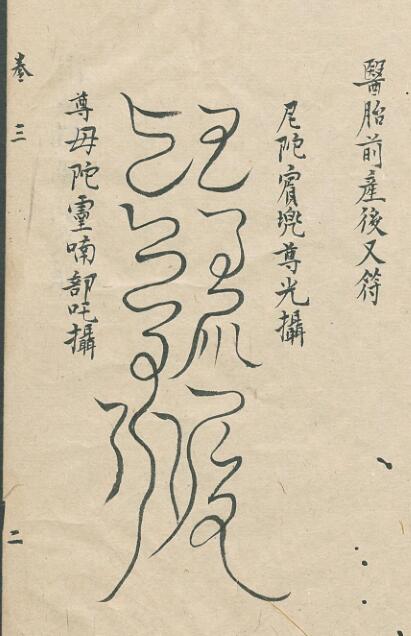 醫胎前產後又符
尼陀賓兠尊光攝
尊母陀靈喃部吒攝
卷三
二